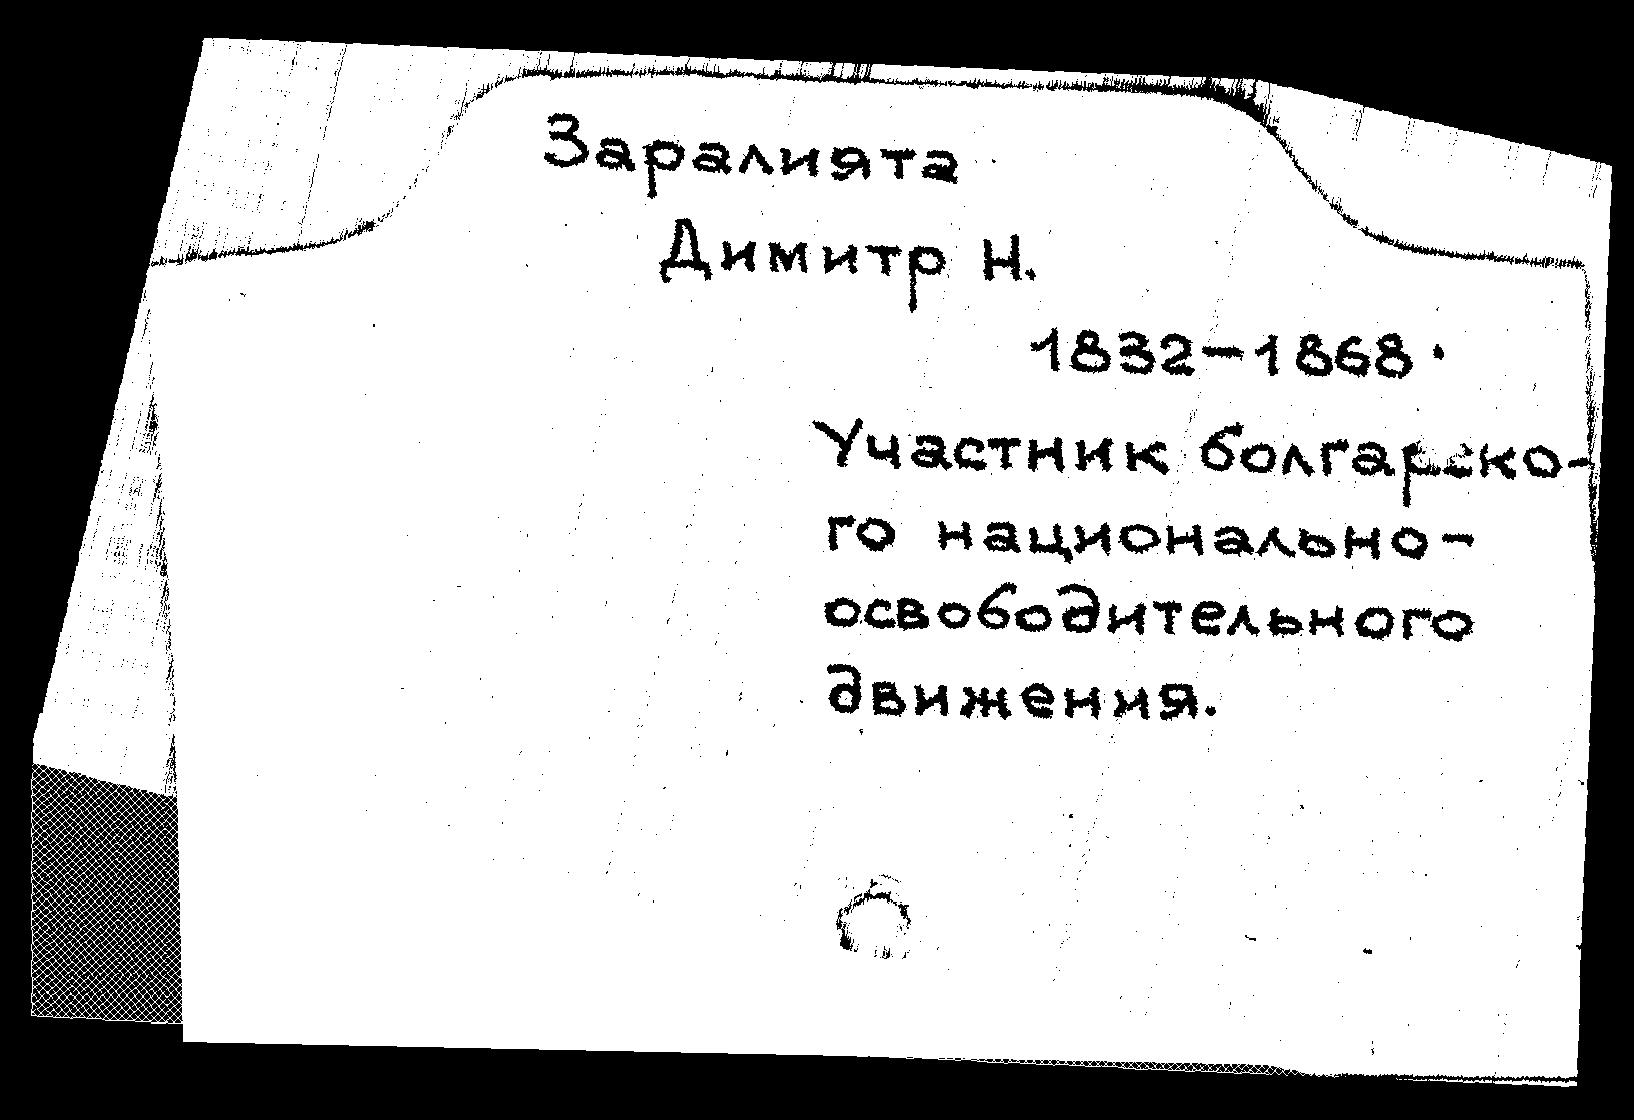 Заралията
Димитр Н.
1832-1868.
Участник болгарско-
го национально-
освободительного
движения.